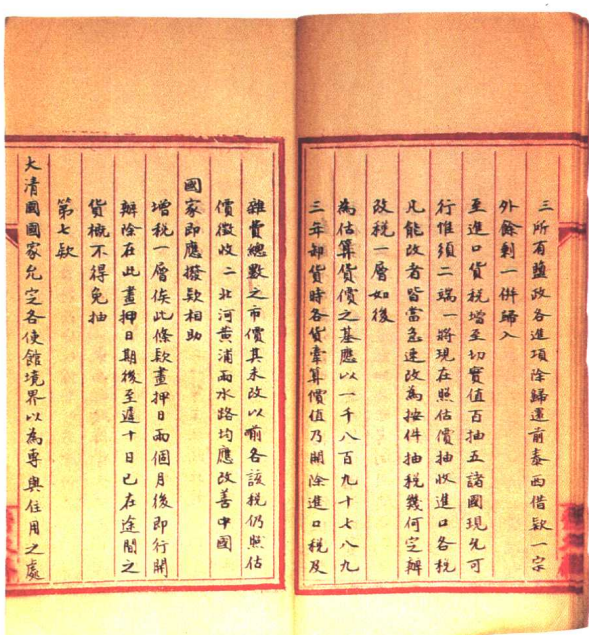 三所有鹽政各進項除歸還前泰西借款一宗
外餘剩一併歸入
至進口貨稅增至切實值百抽五諸國現允可
行惟須二端一將現在照估價抽收進口各稅
凡能改者皆當急速改為按件抽稅幾何定辦
改稅一層如後
為估算貨價之基應以一千八百九十七八九
三年卸貨時各貨牽算價值乃開除進口稅及
雜費總數之市價其未改以前各該稅仍照估
價徵收二北河黃浦兩水路均應改善中國
國家即應撥款相助
增稅一層俟此條款畫押日兩個月後即行開
辦除在此畫押日期後至遲十日已在途間之
貨概不得免抽
第七款
大清國國家允定各使館境界以為專與住用之處